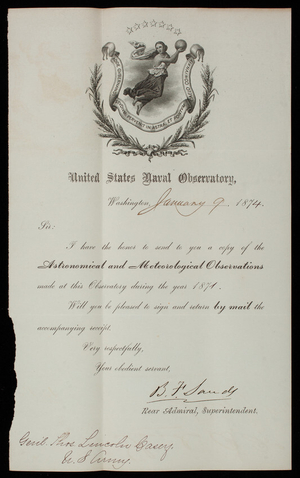 United States Naval Observatory,
Washington, January 9 1874.
Sir:
I have the honor to send to you a copy of the
Astronomical and Meteorological Observations
made at this Observatory during the year 1871.
Will you be pleased to sign and return by mail the
accompanying receipt.
Very respectfully,
Your obedient servant,
B. F. Sands
Rear Admiral, Superintendent.
Genl. Thos Lincoln Casey,
U. S. Army.